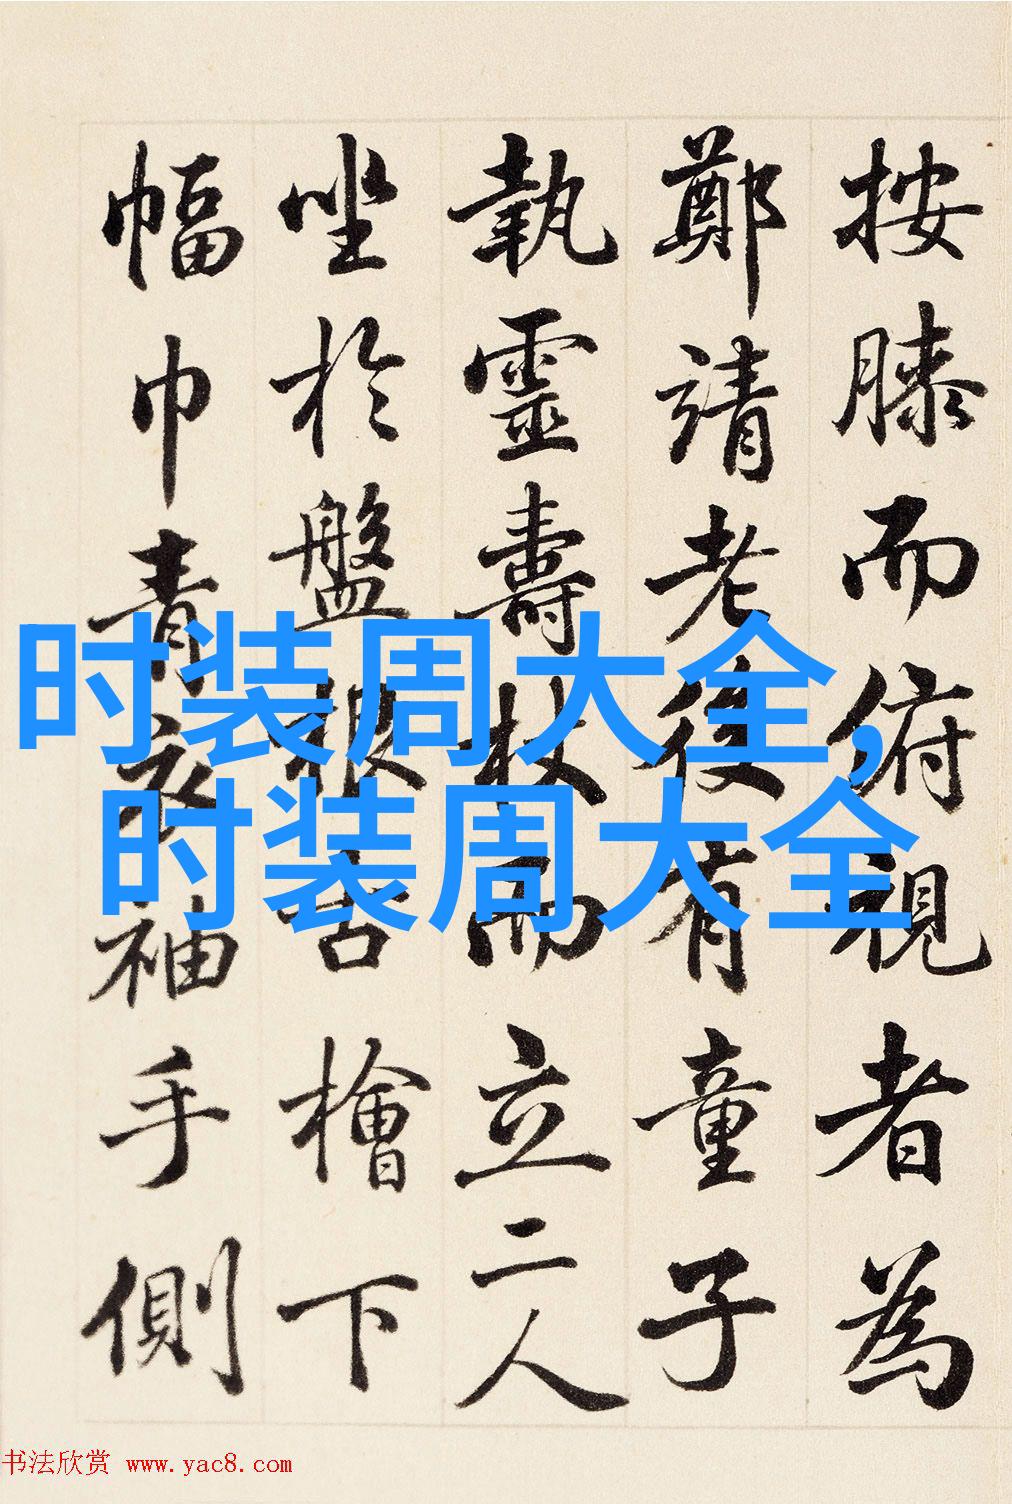 按膝而俯視者為
鄭靖老後有童子
執靈壽杖而立二人
坐於盤根古檜下
幅巾青衣袖手側
时装周大全,
时装周大全
书法欣赏 www.yac8.com